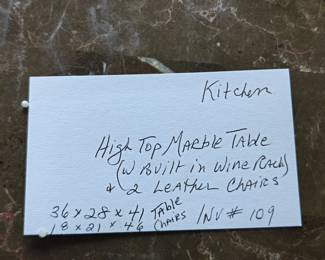 Kitchen
High Top Marble Table
(W Built in Wine Rack)
& 2 Leather Chairs
36 x 28 x 41 Table
18 x 21 x 46 Chairs Inv # 109